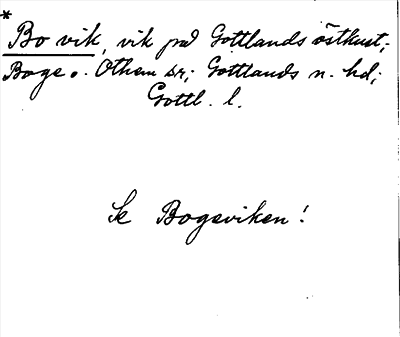 *
Bo vik, vik på Gottlands östkust;
Boge o. Othem sr; Gottlands n. hd;
Gottl. l.
Se Bogeviken!